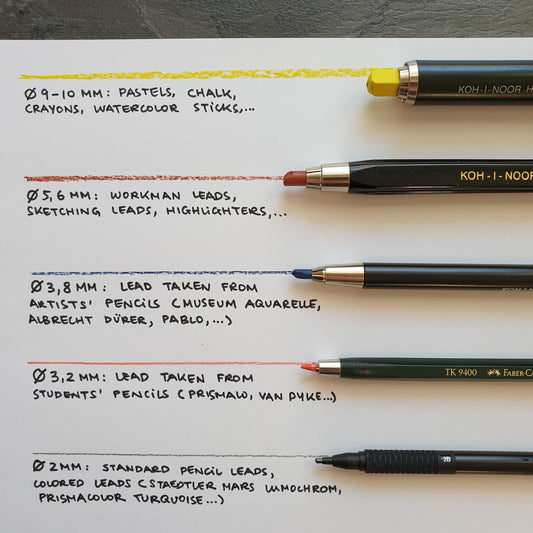 Ø 9-10 MM: PASTELS, CHALK,
CRAYONS, WATERCOLOR STICKS,...
KOH-I-NOOR H
Ø 5,6 MM: WORKMAN LEADS,
SKETCHING LEADS, HIGHLIGHTERS,...
KOH-I-NOOR
Ø 3,8 MM: LEAD TAKEN FROM
ARTISTS' PENCILS (MUSEUM AQUARELLE,
ALBRECHT DÜRER, PABLO,...)
Ø 3,2 MM: LEAD TAKEN FROM
STUDENTS' PENCILS (PRISMALO, VAN DYKE...)
TK 9400 FABER-CA
Ø 2 MM: STANDARD PENCIL LEADS,
COLORED LEADS (STAEDTLER MARS LUMOCHROM,
PRISMACOLOR TURQUOISE...)
2B